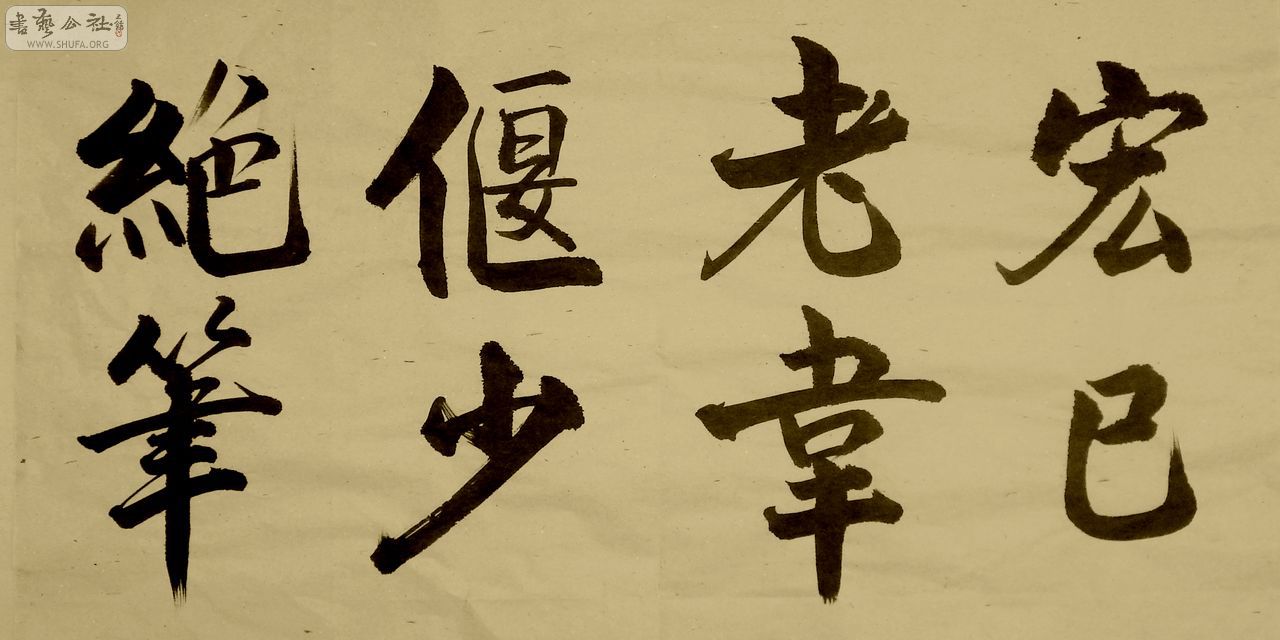 宏已
老韋
偃少
絕筆
書藝公社
WWW.SHUFA.ORG